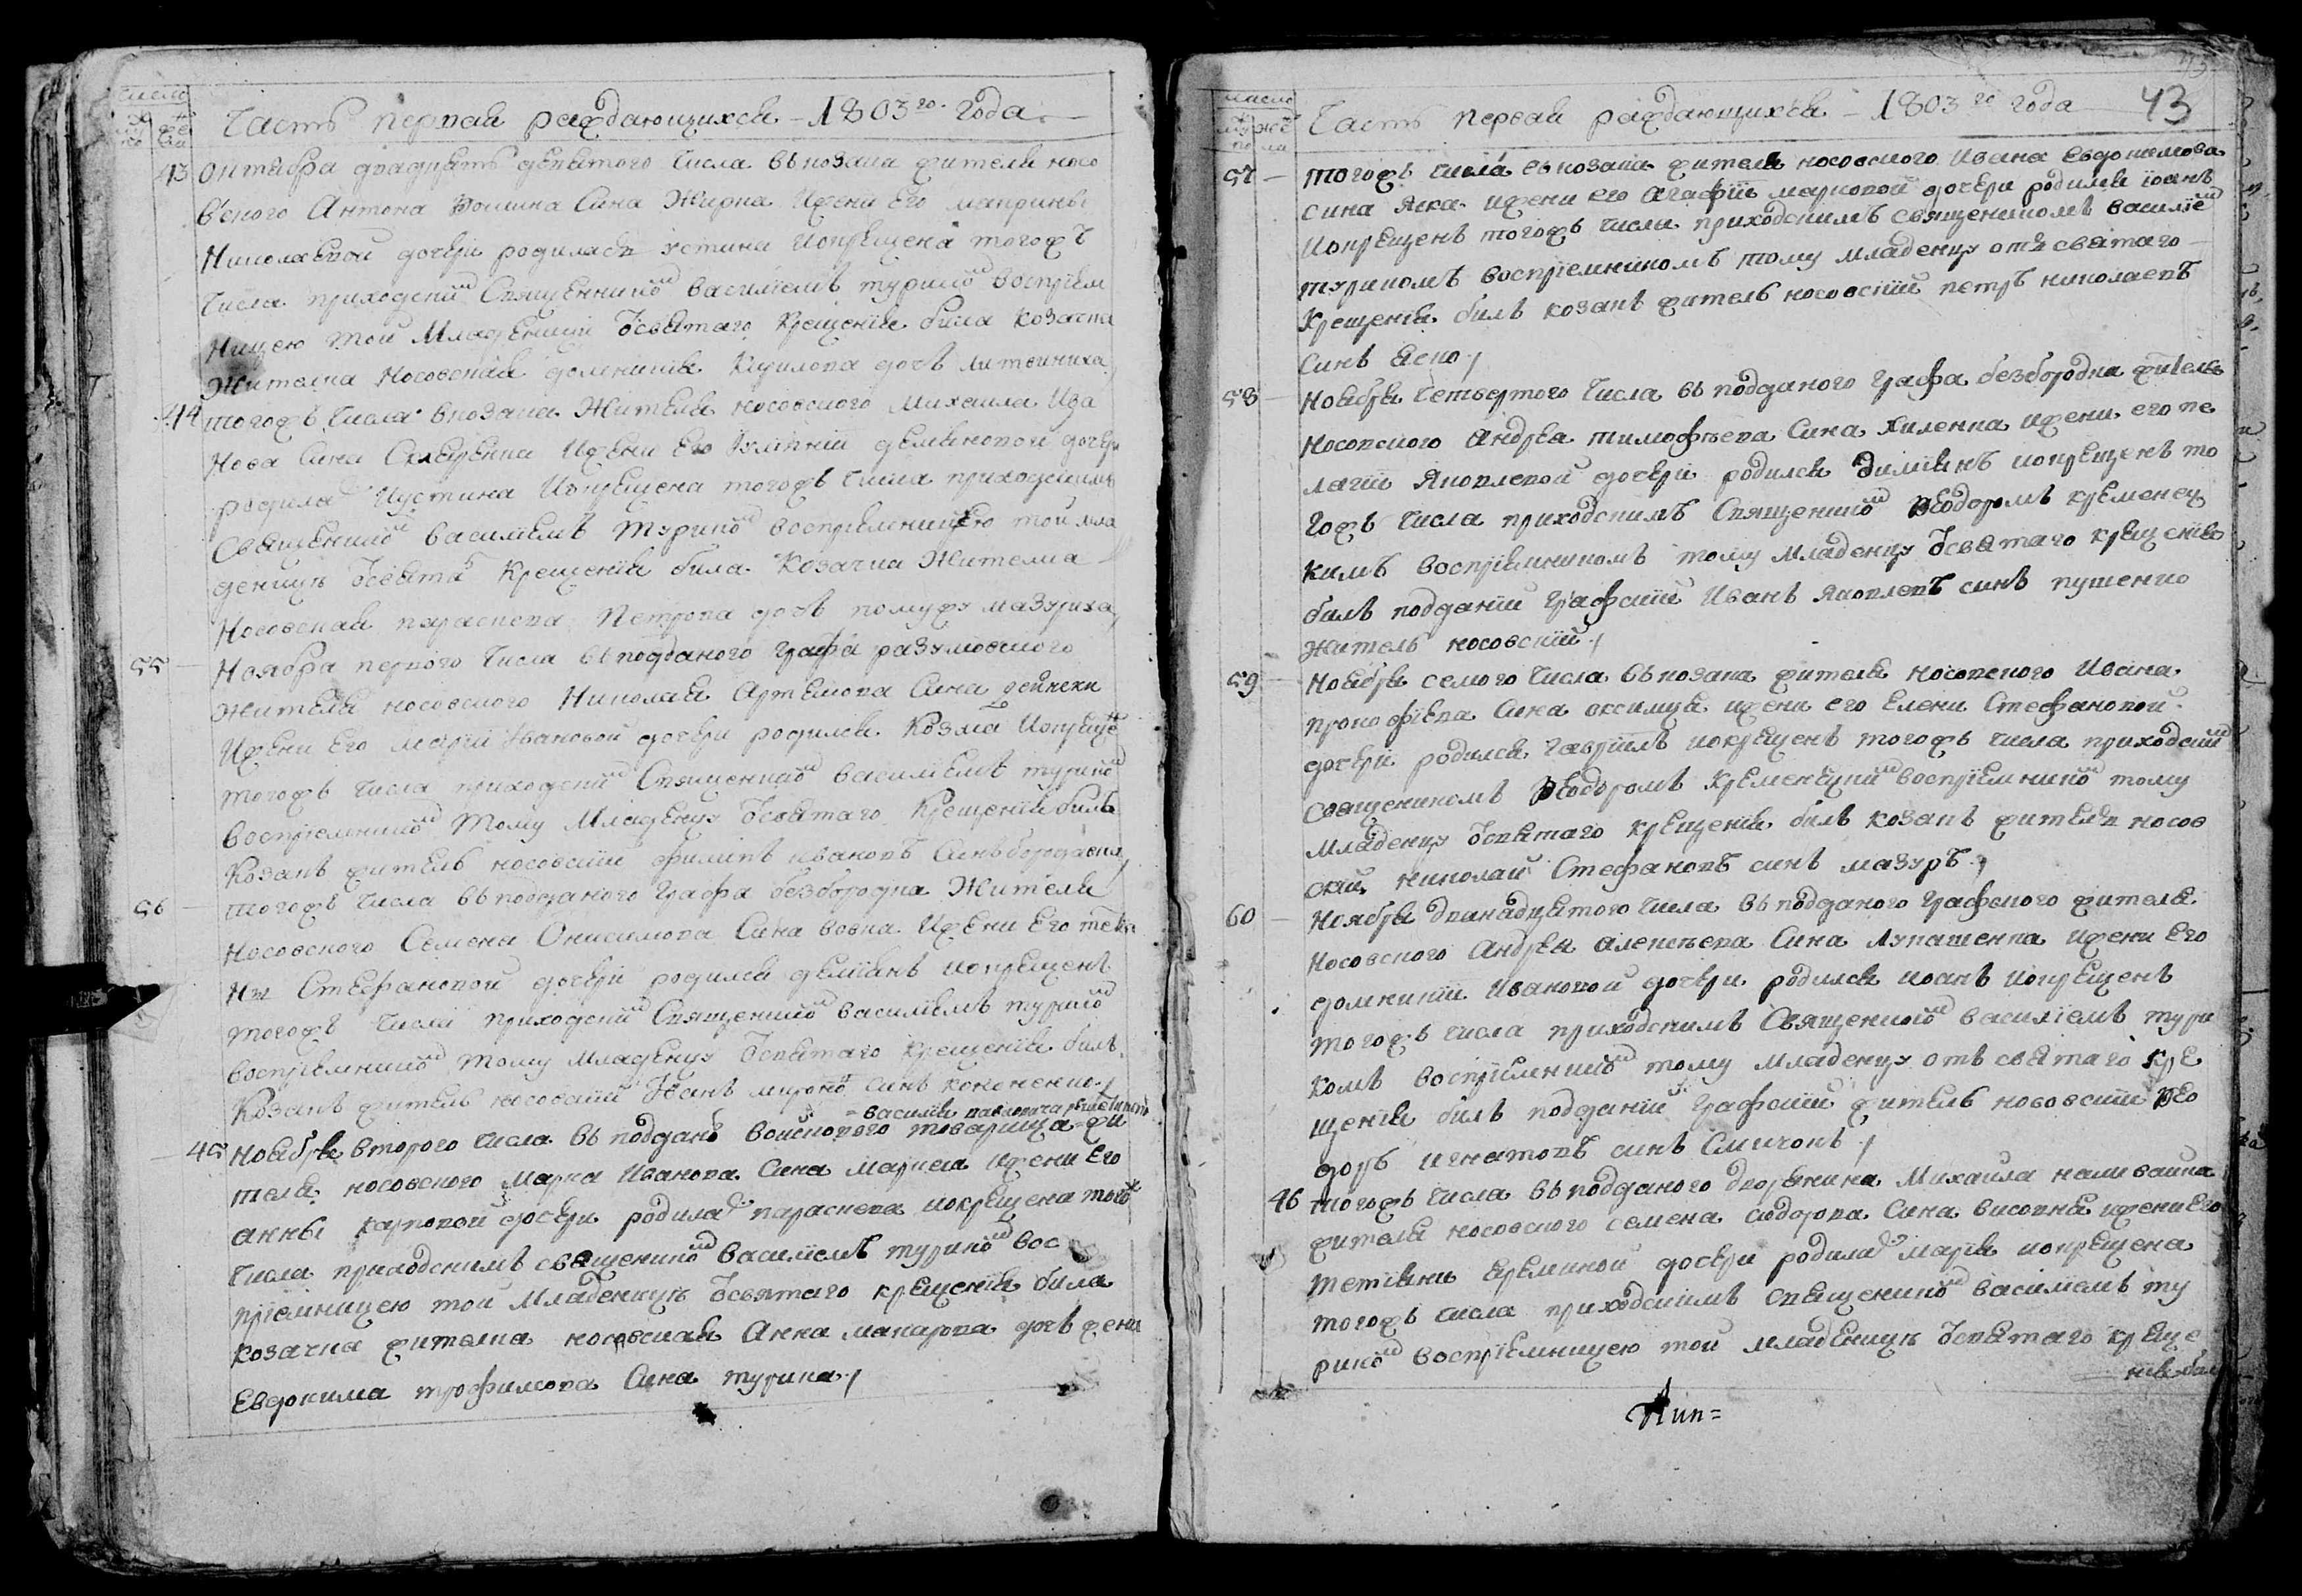 Часть первая раждающихся 1803го года
43 октября двадцять девятого числа въ козака жителя носо
вского Антона Фомина сина Жирка и жени его маприны
Николаевой дочери родилась устиния и окрещена тогожъ
числа приходским священником василиемъ турком восприем
ницею той младеници от святаго крещения била козачка
жителка носовская домникия дочь литвиниха
44 тогожъ числа в козака жителя носовского михаила ива
нова сина и жени его дочери
родилас иустина и окрещена тогожъ числа приходскимъ
священником василиемъ турком восприемницею той мла
деницъ от свята крещения била козачка жителка
носовская параскева петрова дочь по мужу мазуриха
55 ноября первого числа въ подданого графа разумовского
жителя носовского николая артемова сина дейнеки
и жени его марии ивановой дочери родился козма и окреще
тогожъ числа приходским священником василиемъ турком
восприемником тому младенцу от святаго крещения билъ
козакъ житель носовский филипъ ивановъ синъ
56 тогожъ числа въ подданого графа безбородка жителя
носовского семена онисимова сина вовка и жени его тетия
ни стефановой дочери родился демиянъ и окрещенъ
тогожъ числа приходским священником василиемъ турком
восприемником тому младенцу от святаго крещения билъ
козакъ житель носовский иванъ мироновъ синъ кононенко
василия павловича
45 ноября второго числа въ поддано войскового товарища жи
теля носовского марка иванова сина и жени его
анны карповой дочери родилас параскева и окрещена тогож
числа приходскимъ священником василиемъ турком вос
приемницею той младеницъ от святаго крещения била
козачка жителка носовская анна макарова дочь жена
евдокима трофимова сина турка
число
Часть первая раждающихся 1803го года 43
57 тогожъ числа въ козака жителя носовского ивана евдокимова
сина яска и жени его агафии марковой дочери родился иоанъ
и окрещенъ тогожъ числа приходскимъ священикомъ василием
туркомъ восприемникомъ тому младенцу отъ святаго
крещения билъ козакъ житель носовский петръ николаевъ
синъ яско
58 ноября четвертого числа въ подданого графа безбородка жителя
носовского андрея тимофъева сина хиленка и жени его пе
лагии яковлевой дочери родился димиянъ и окрещенъ то
гожъ числа приходскимъ священником феодоромъ кременец
кимъ восприемникомъ тому младенцу от святаго крещения
билъ подданий графский иванъ яковлевъ синъ пушенко
житель носовский
59 ноября семого числа въ козака жителя носовского ивана
прокофиева сина и жени его елени стефановой
дочери родился гавриилъ и окрещенъ тогожъ числа приходским
священикомъ феодоромъ кременецким восприемником тому
младенцу от святаго крещения билъ козакъ житель носов
ский николай стефановъ синъ мазуръ
60 ноября дванадцятого числа въ подданого графского жителя
носовского андрея алексъева сина лукашенка и жени его
домникии ивановой дочери родился иоанъ и окрещенъ
тогожъ числа приходскимъ священником василиемъ тур
комъ восприемником тому младенцу отъ святаго кре
щения билъ подданий графский житель носовский фео
доръ игнатовъ синъ
46 тогожъ числа въ подданого дворянина михаила наливайка
жителя носовского семена сидорова сина и жени его
тетияни ереминой дочери родилас мария и окрещена
тогожъ числа приходскимъ священником василиемъ ту
рком восприемницею той младеницъ от святаго креще
ния бил